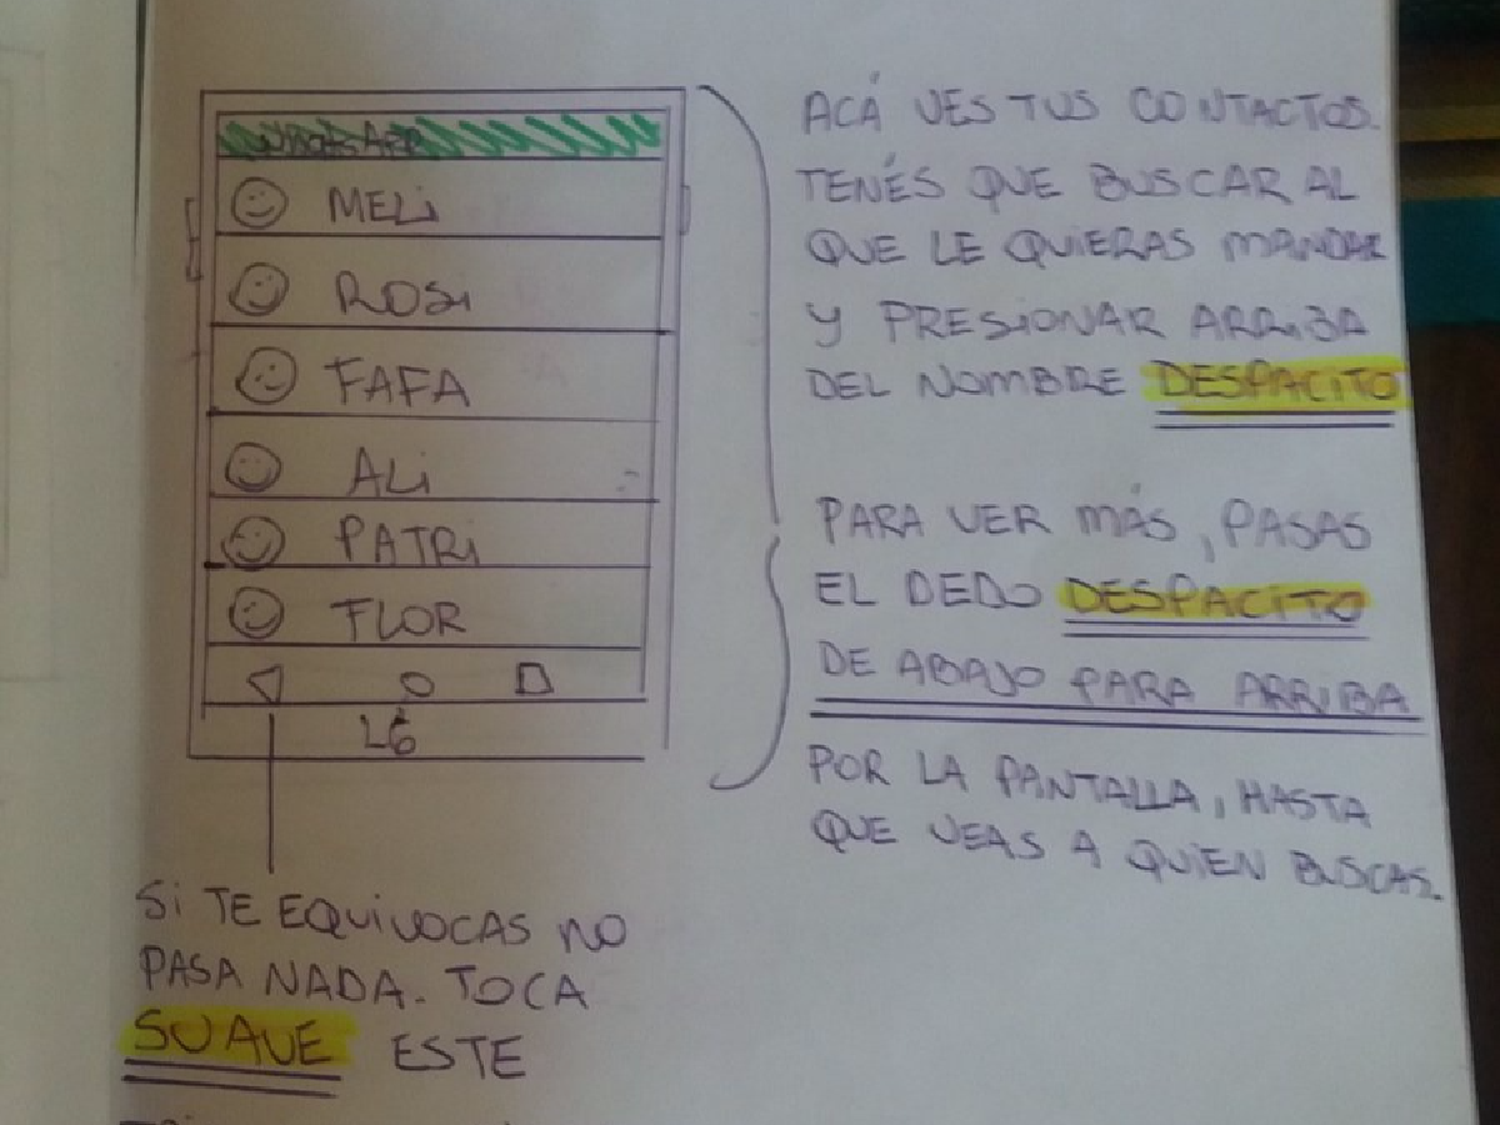 WHATSAPP
MELI
ROSI
FAFA
ALI
PATRI
FLOR
LG
ACÁ VES TUS CONTACTOS.
TENÉS QUE BUSCAR AL
QUE LE QUIERAS MANDAR
Y PRESIONAR ARRIBA
DEL NOMBRE DESPACITO
PARA VER MÁS, PASAS
EL DEDO DESPACITO
DE ABAJO PARA ARRIBA
POR LA PANTALLA, HASTA
QUE VEAS A QUIEN BUSCAS.
SI TE EQUIVOCAS NO
PASA NADA. TOCA
SUAVE ESTE